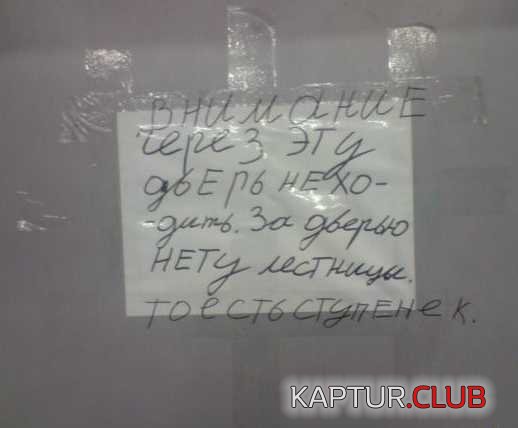 ВНИМАНИЕ
через эту
дверь не хо-
-дить. За дверью
НЕТУ лестницы.
тоесть ступенек.
KAPTUR.CLUB